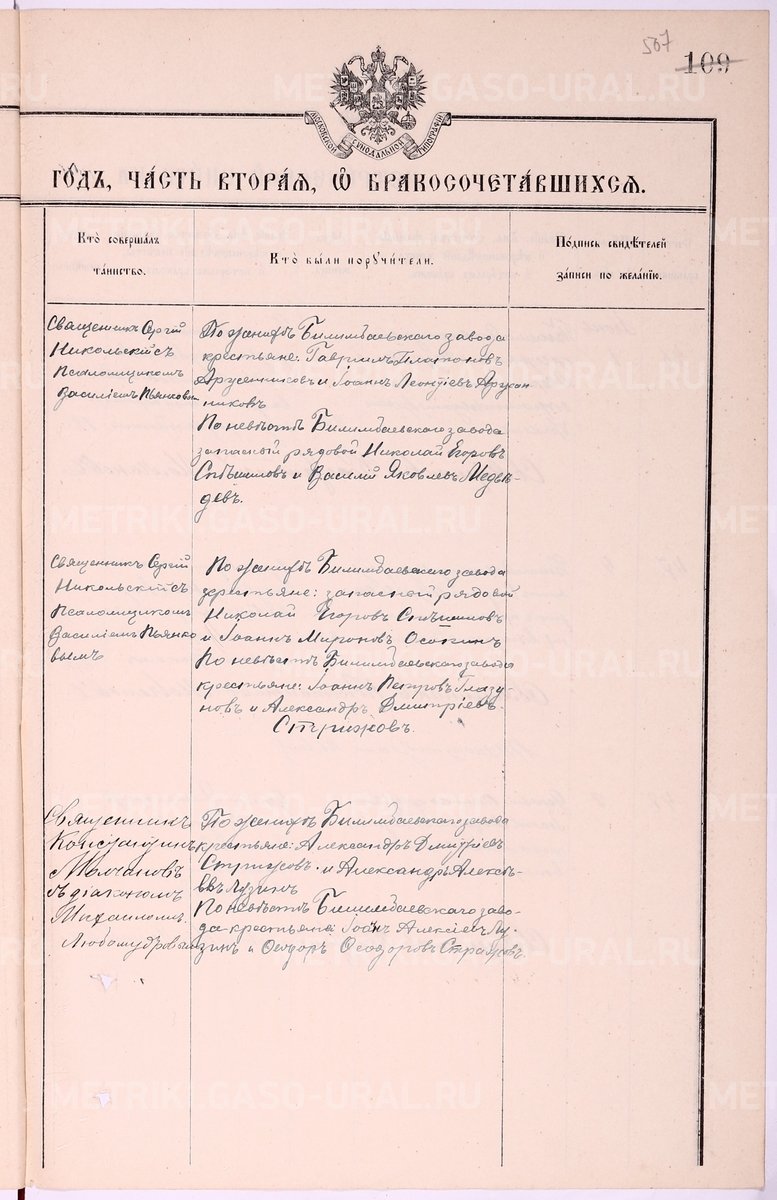 507
109
МОСКОВСКОЙ СѴНОДАЛЬНОЙ ТИПОГРАФІИ
ГО́ДЪ, ЧА́СТЬ ВТОРА́Я, Ѡ БРАКОСОЧЕТА́ВШИХСЯ.
Кто̀ соверша́лъ
та́инство.
Кто̀ бы́ли порꙋчи́тели.
По́дпись свидѣ́телей
за́писи по жела́нїю.
Священникъ Сергій
Никольскій съ
Псаломщикомъ
Василіемъ Пьянковым
По женихѣ Билимбаевскаго завода
крестьяне: Гавріилъ Платоновъ
и Іоаннъ Леонтіевъ
никовъ
По невѣстѣ Билимбаевскаго завода
запасный рядовой Николай Егоровъ
Спѣшиловъ и Василій Яковлевъ Медвѣ-
девъ.
Священникъ Сергій
Никольскій съ
Псаломщикомъ
Василіемъ Пьянко
вымъ
По женихѣ Билимбаевскаго завода
крестьяне: запасный рядовой
Николай Егоровъ Спѣшиловъ
и Іоаннъ Мироновъ Осокинъ
По невѣстѣ Билимбаевскаго завода
крестьяне: Іоаннъ Петровъ Глазу-
новъ и Александръ Дмитріевъ
Стрижовъ.
Священникъ
Константинъ
Молчановъ
съ діакономъ
Михаиломъ
Любомудровым
По женихѣ Билимбаевскаго завода
крестьяне: Александръ Дмитріевъ
Стрижовъ и Александръ Алексѣ-
евъ Лузинъ
По невѣстѣ Билимбаевскаго заво-
да крестьяне Іоаннъ Алексіевъ Лу-
зинъ и Ѳеодоръ Ѳеодоровъ Стражовъ.
METRIKI.GASO-URAL.RU